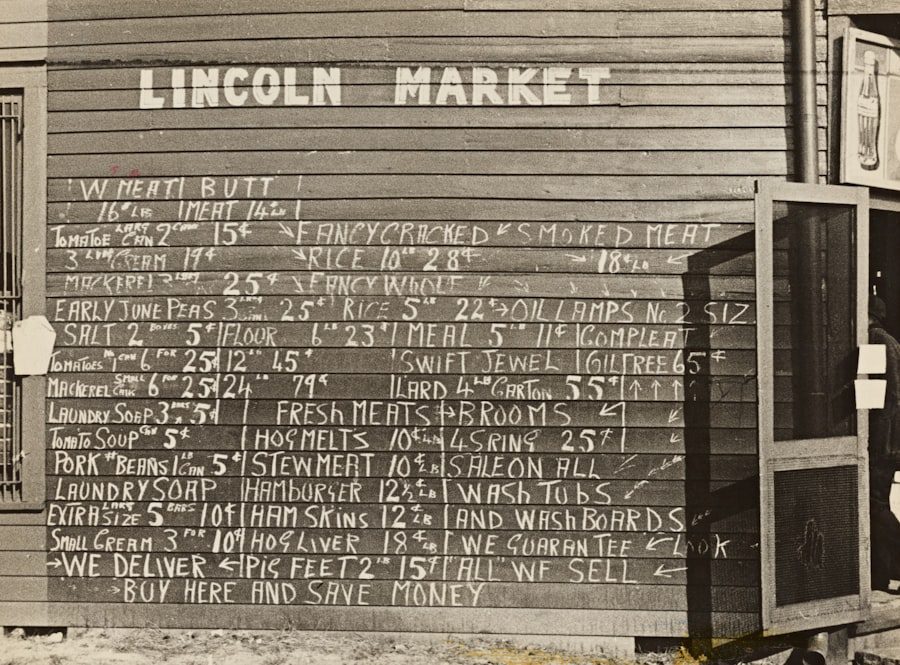 LINCOLN MARKET
W MEAT BUTT
16¢ LB MEAT 14¢ LB
TOMATOE LARG CAN 2 CAN 15¢ FANCY CRACKED SMOKED MEAT
3 CREAM 19¢ RICE 10 LB 28¢ 18¢ LB
MACKEREL 25¢ FANCY WHOLE
EARLY JUNE PEAS 3 25¢ RICE 5 LB 22¢ OIL LAMPS No 2 SIZ
SALT 2 BOXES 5¢ FLOUR 6 LB 23¢ MEAL 5 LB 11¢ COMPLEAT
TOMATOES No 1 CAN 6 FOR 25¢ 12 LB 45¢ SWIFT JEWEL GILTREE 65¢
MACKEREL SMALL CAN 6 FOR 25¢ 24 LB 79¢ LARD 4 LB CARTON 55¢
LAUNDRY SOAP 3 BARS 5¢ FRESH MEATS BROOMS
TOMATO SOUP CAN 5¢ HOG MELTS 10¢ LB 4 SRING 25¢
PORK # BEANS 1 LB CAN 5¢ STEW MEAT 10¢ LB SALE ON ALL
LAUNDRY SOAP HAMBURGER 12½ LB WASH TUBS
EXTRA LARG SIZE 5 BARS 10¢ HAM SKINS 12¢ LB AND WASH BOARDS
SMALL CREAM 3 FOR 10¢ HOG LIVER 18¢ LB WE GUARANTEE LOOK
WE DELIVER PIG FEET 2 LB 15¢ "ALL" WE SELL
BUY HERE AND SAVE MONEY